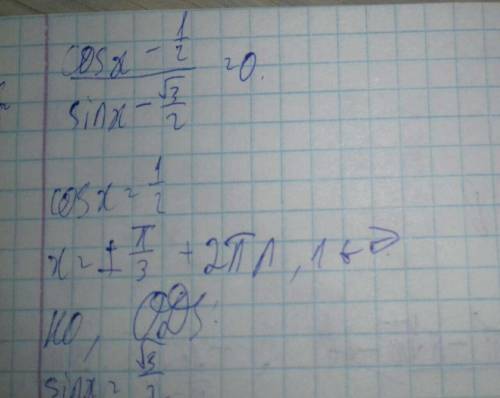 cosx - 1/2
sinx - √3/2 = 0.
cosx = 1/2
x = ± π/3 + 2πn, n ∈
но, ОДЗ:
sinx = √3/2